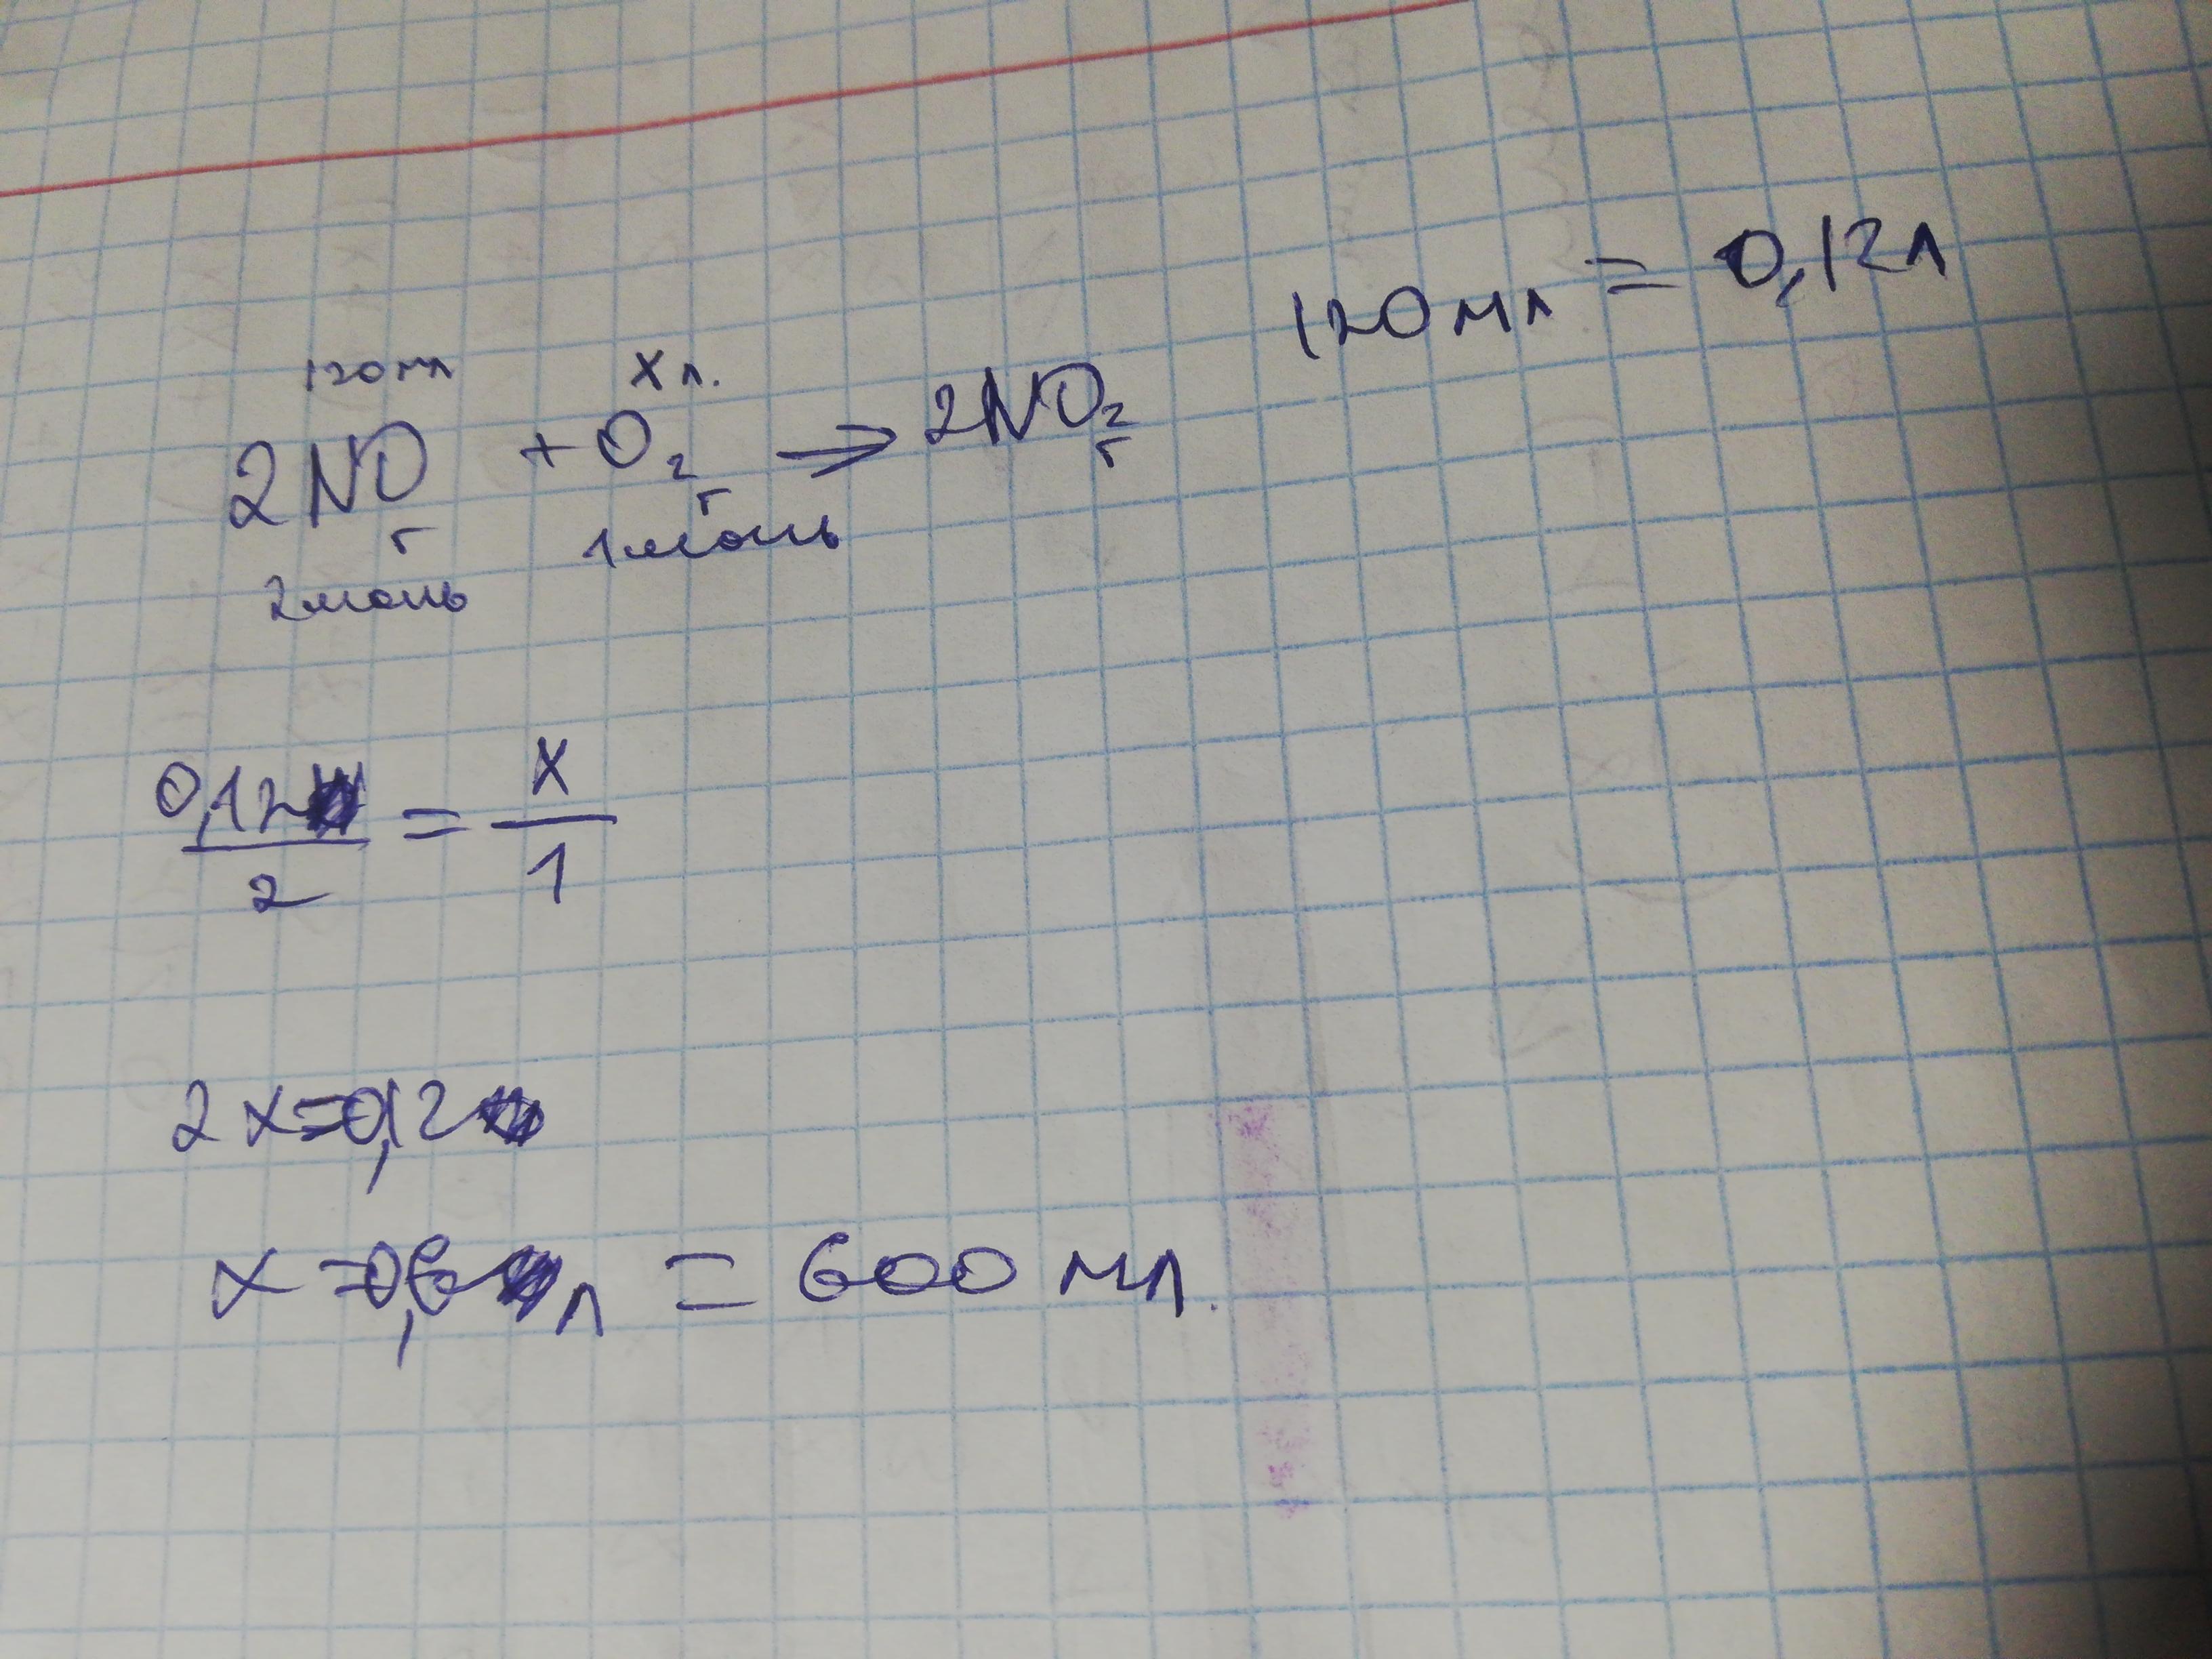 120 мл = 0,12 л
120 мл х л.
2NO + O₂ → 2NO₂
г г г
2 моль 1 моль
0,12/2 = х/1
2х=0,12
х=0,6 л = 600 мл.